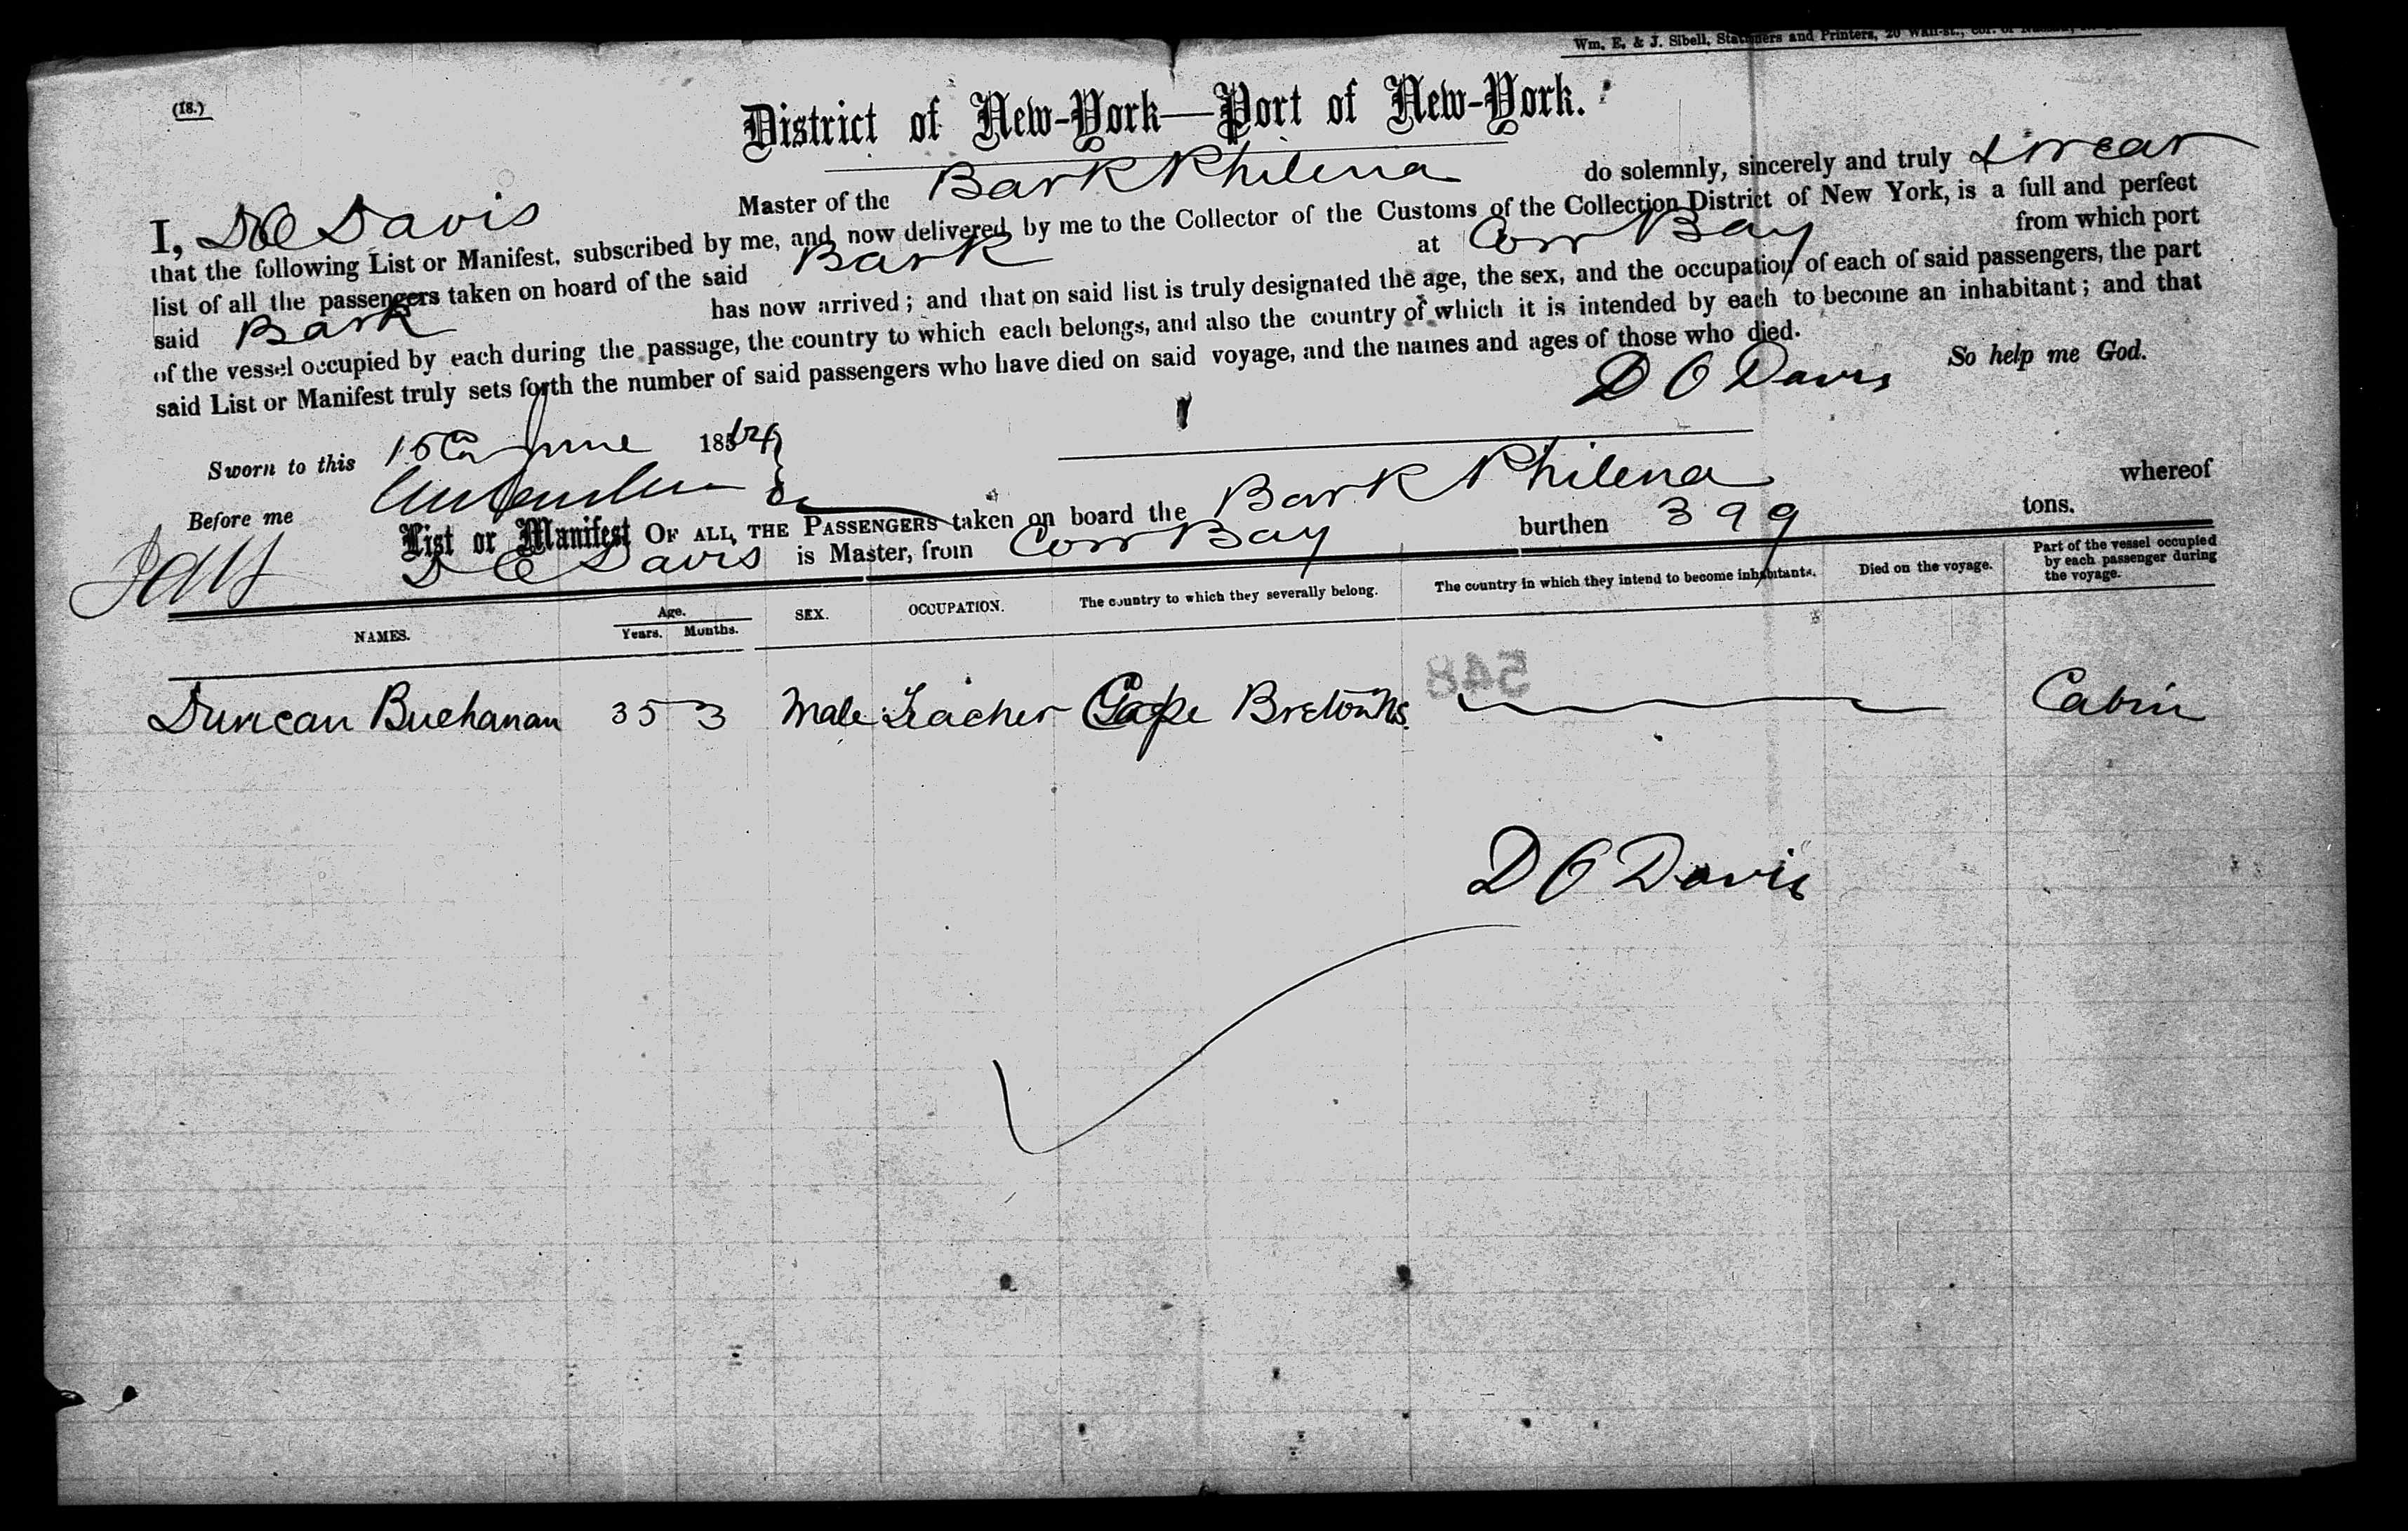 Wm. E. & J. Sibell, Stationers and Printers, 20 Wall-st., cor. of Nassau,
(18.)
District of New-York—Port of New-York.
I, D O Davis Master of the Bark Philena do solemnly, sincerely and truly swear
that the following List or Manifest, subscribed by me, and now delivered by me to the Collector of the Customs of the Collection District of New York, is a full and perfect
list of all the passengers taken on board of the said Bark at Cow Bay from which port
said Bark has now arrived; and that on said list is truly designated the age, the sex, and the occupation of each of said passengers, the part
of the vessel occupied by each during the passage, the country to which each belongs, and also the country of which it is intended by each to become an inhabitant; and that
said List or Manifest truly sets forth the number of said passengers who have died on said voyage, and the names and ages of those who died.
So help me God.
D O Davis
Sworn to this 15 June 18
Before me
List or Manifest OF ALL THE PASSENGERS taken on board the Bark Philena whereof
D O Davis is Master, from Cow Bay burthen 399 tons.
NAMES. Age. Years. Months. SEX. OCCUPATION. The country to which they severally belong. The country in which they intend to become inhabitants. Died on the voyage. Part of the vessel occupied by each passenger during the voyage.
548
Duncan Buchanan 35 3 Male Teacher Cape Breton NS. Cabin
D O Davis